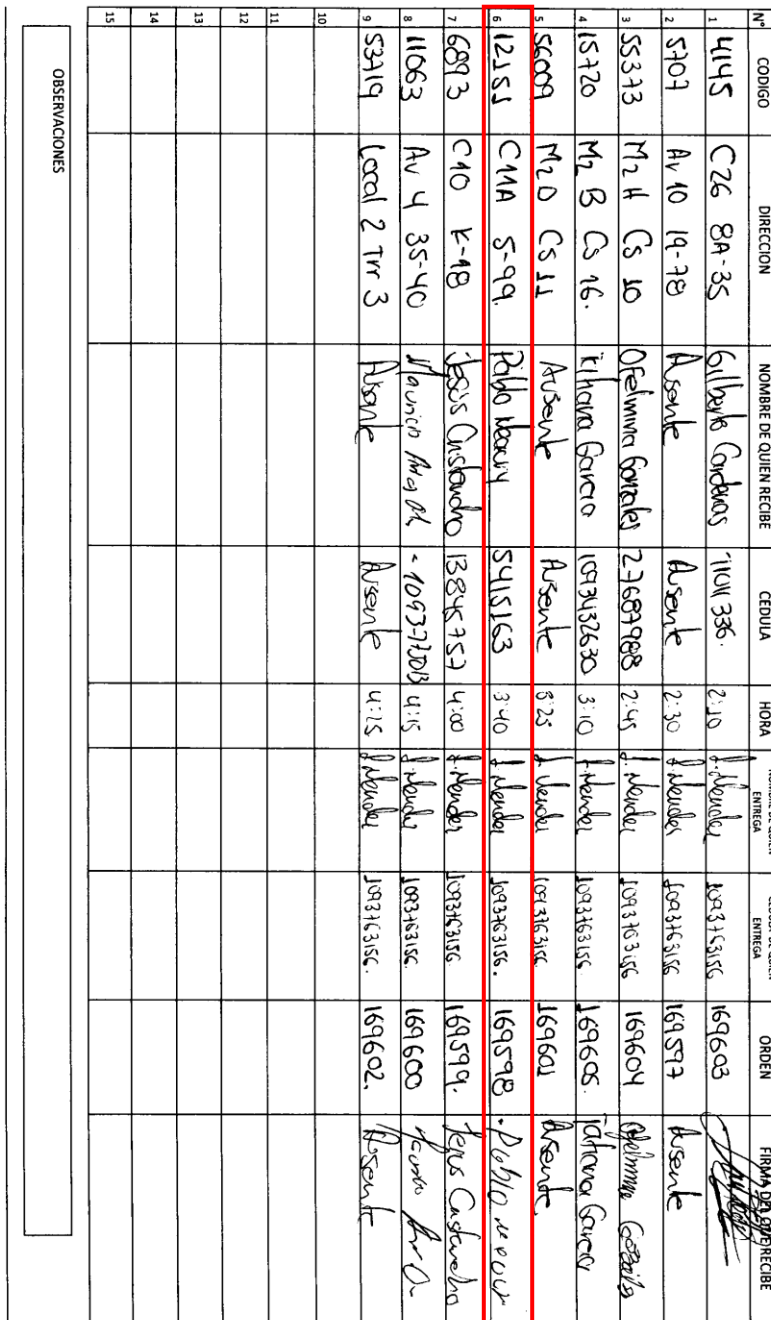 N° CODIGO DIRECCION NOMBRE DE QUIEN RECIBE CEDULA HORA NOMBRE DE QUIEN ENTREGA CEDULA DE QUIEN ENTREGA ORDEN FIRMA DEL QUE RECIBE
1 4145 C26 8A-35 Gilberto Cardenas 11011336. 2:10 J.Mendez 1093763156 169603
2 5707 Av 10 19-78 Ausente Ausente 2:30 J.Mendez 1093763156 169597 Ausente
3 55373 Mz H Cs 10 Ofelmina Gonzales 27687988 2:45 J.Mendez 1093763156 169604
4 15720 Mz B Cs 16. Garcia 1093432630 3:10 J.Mendez 1093763156 169605. Tatiana Garcia
5 56009 Mz D Cs 11 Ausente Ausente 3:25 J.Mendez 1093763156 169601 Ausente
6 12151 C11A 5-99. Pablo 5415163 3:40 J.Mendez 1093763156. 169598 Pablo
7 6893 C10 K-18 Jesus Cristancho 13845757 4:00 J.Mendez 1093763156. 169599. Jesus Cristancho
8 11063 Av 4 35-40 Mauricio 4:15 J.Mendez 1093763156. 169600
9 53719 Local 2 Trr 3 Ausente Ausente 4:25 J.Mendez 1093763156. 169602. Ausente
10
11
12
13
14
15
OBSERVACIONES